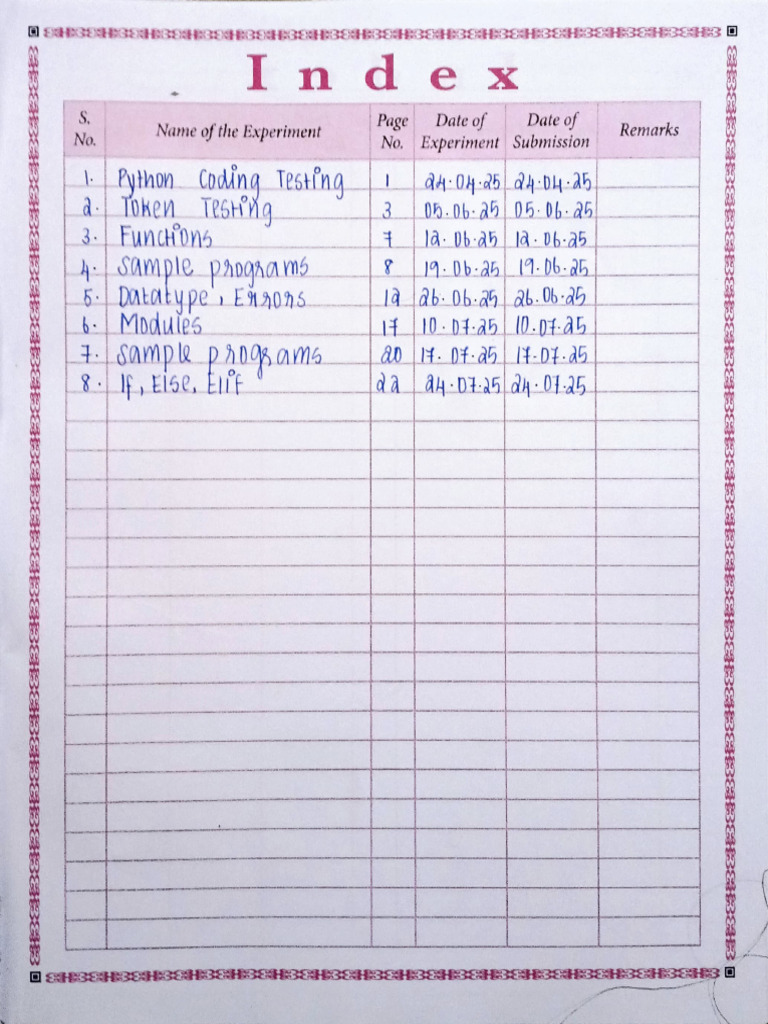 Index
S. No. Name of the Experiment Page No. Date of Experiment Date of Submission Remarks
1. Python Coding Testing 1 24.04.25 24.04.25
2. Token Testing 3 05.06.25 05.06.25
3. Functions 7 12.06.25 12.06.25
4. Sample programs 8 19.06.25 19.06.25
5. Datatype, Errors 12 26.06.25 26.06.25
6. Modules 17 10.07.25 10.07.25
7. Sample programs 20 17.07.25 17.07.25
8. If, Else, Elif 22 24.07.25 24.07.25